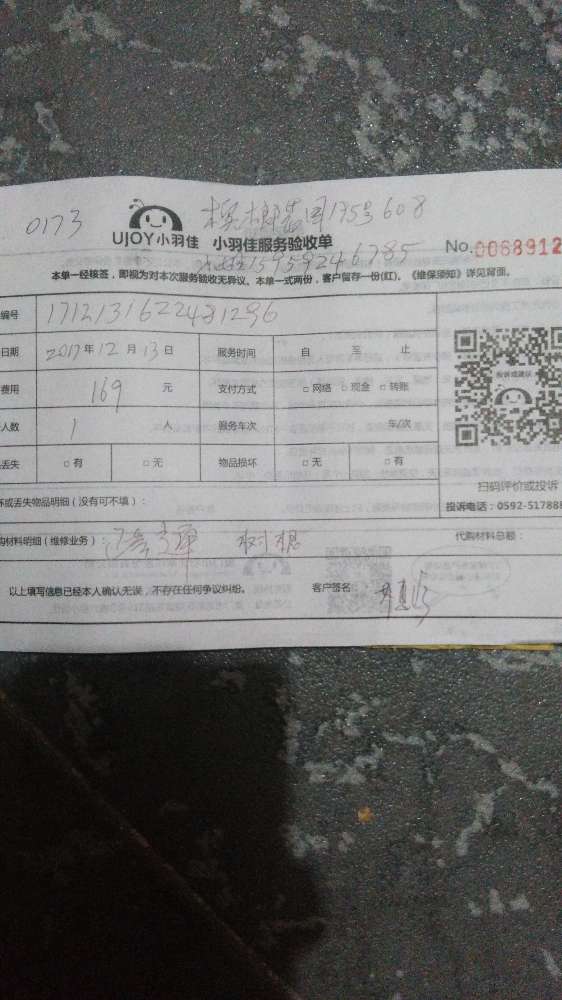 0173
175号608
UJOY小羽佳 小羽佳服务验收单
No.0068912
15959246785
本单一经核签，即视为对本次服务验收无异议。本单一式两份，客户留存一份(红)。《维保须知》详见背面。
编号 1712131622481296
日期 2017年12月13日 服务时间 自 至 止
费用 169 元 支付方式 □网络 □现金 □转账
投诉或建议
人数 1 人 服务车次 车/次
丢失 □有 □无 物品损坏 □无 □有
扫码评价或投诉
坏或丢失物品明细（没有可不填）：
投诉电话：0592-517888
购材料明细（维修业务）： 代购材料总额：
以上填写信息已经本人确认无误，不存在任何争议纠纷。 客户签名：